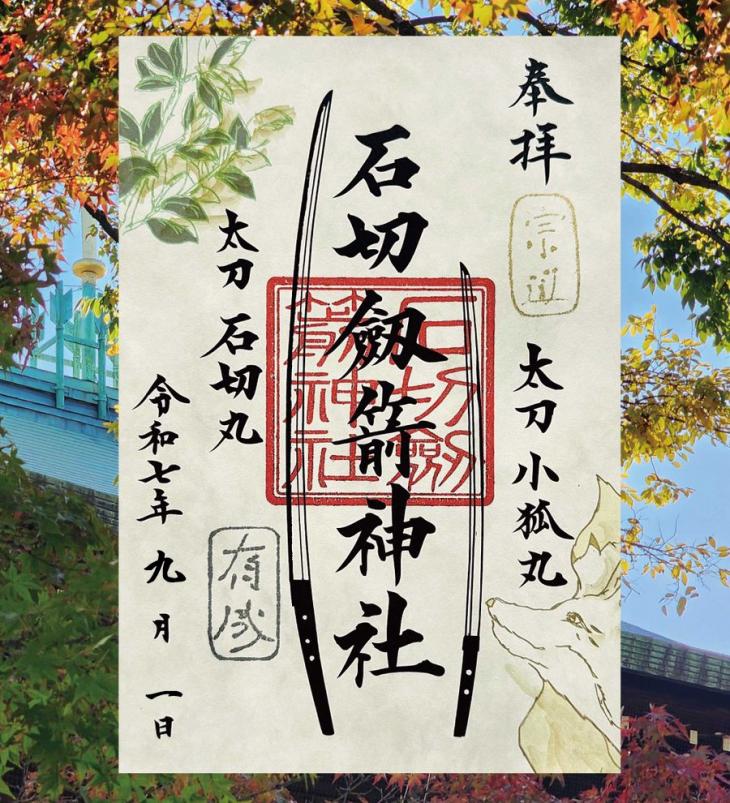 奉拝
宗近
太刀 小狐丸
石切劔箭神社
石切劔
箭神社
太刀 石切丸
有成
令和七年 九月 一日